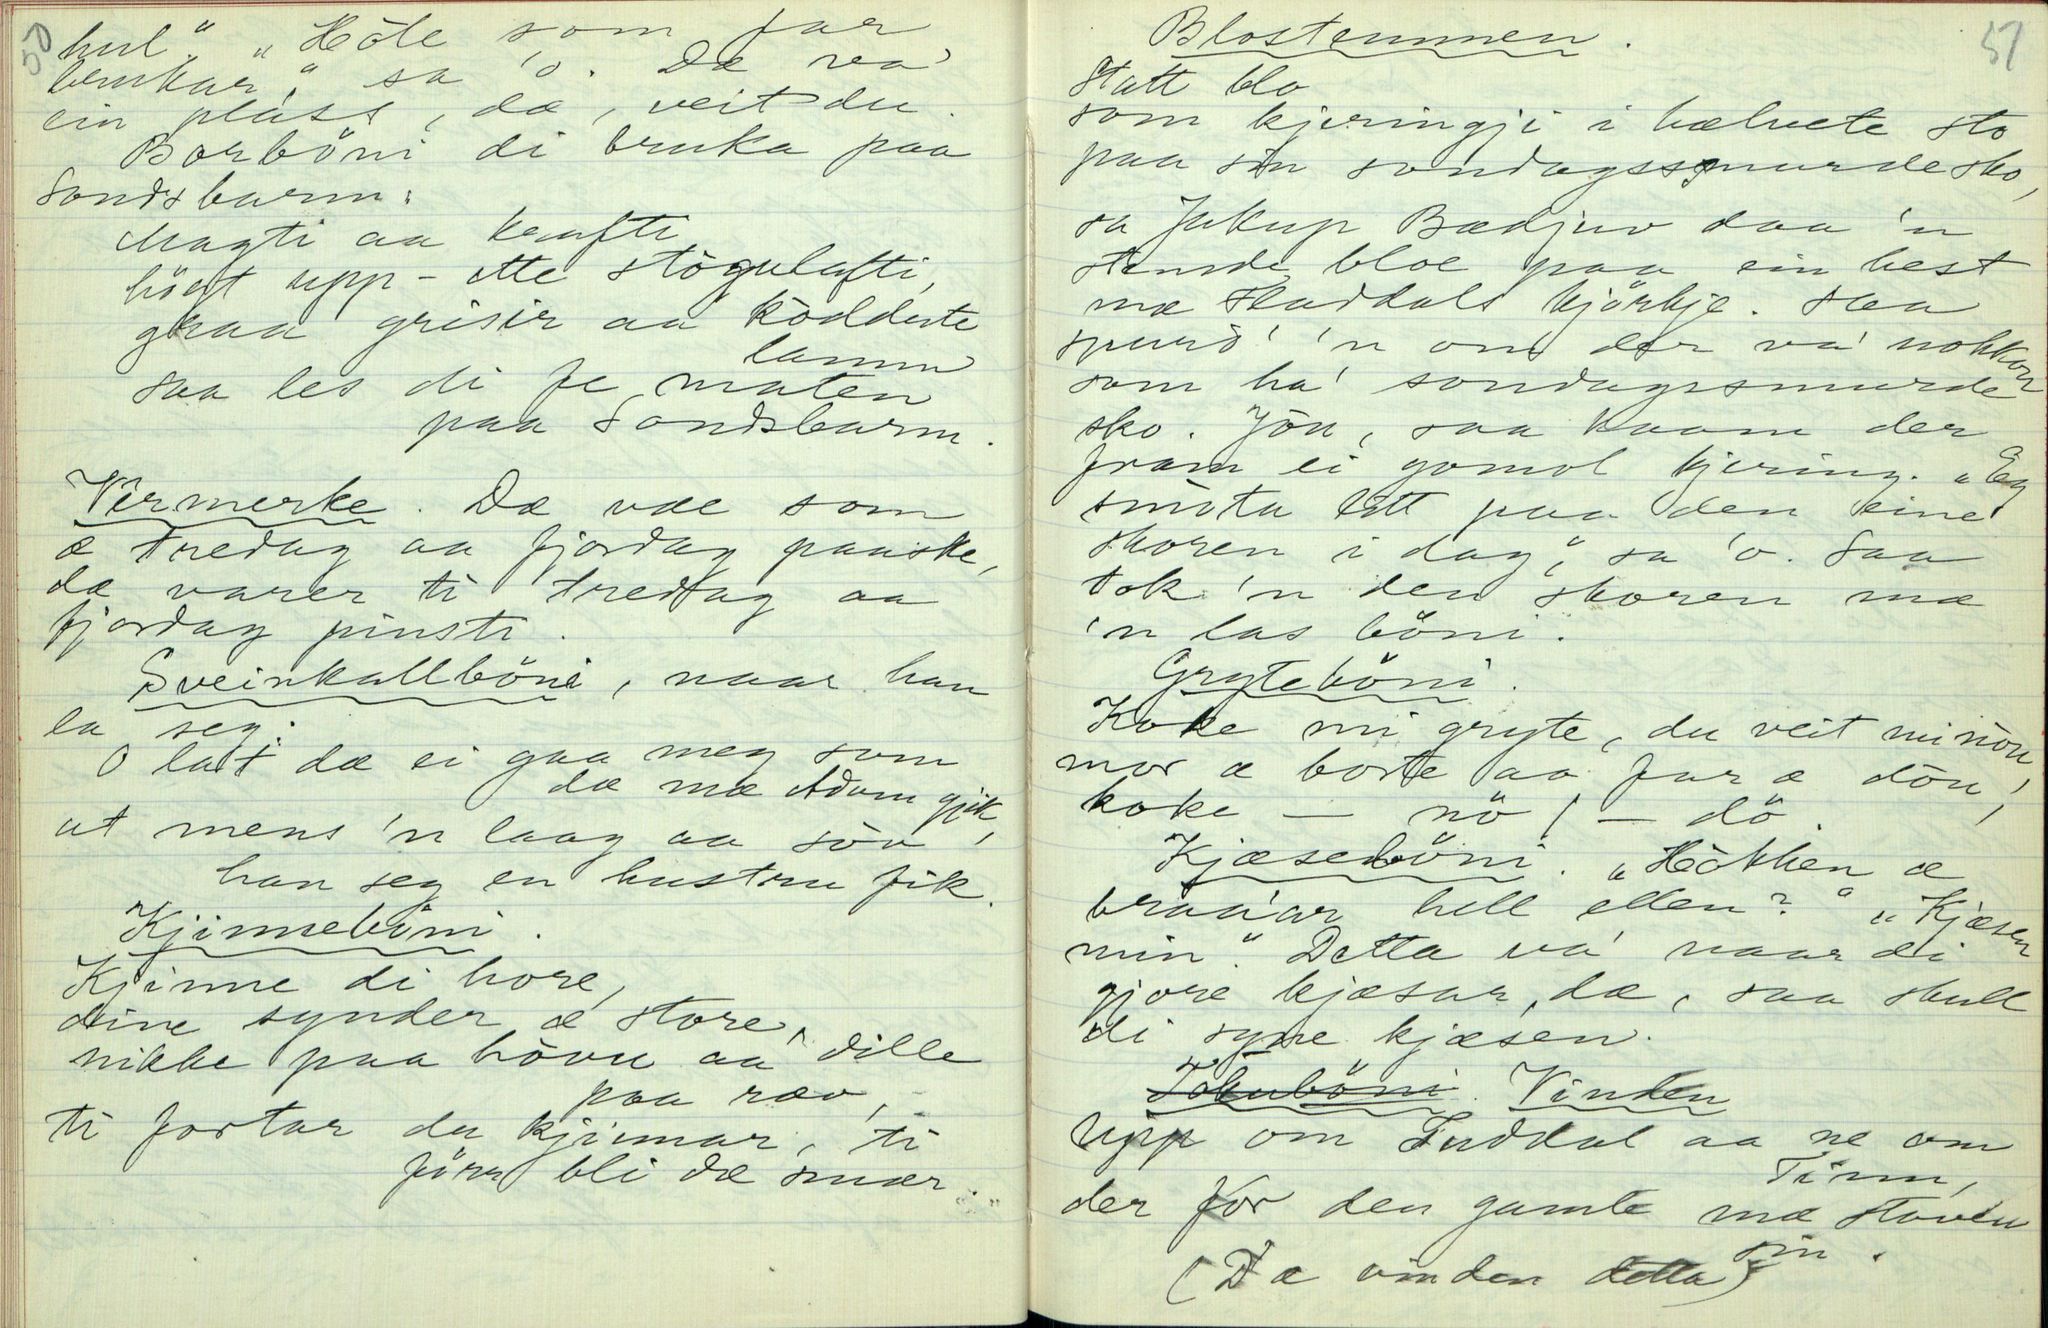 50
hul." "Hòle som far
brukar," sa 'o. Dæ va'
ein plass, dæ, veit du.
Borböni di bruka paa
Sondsbarm:
Magti aa krafti
högt upp - ette stògulufti,
graa grisir aa kòdderte
lamm
saa les di fe maten
paa Sondsbarm.
Vêrmerke. Dæ væe som
æ tredag aa fjordag paaske,
dæ varer ti tredag aa
fjordag pinsti.
Sveinkallböni, naar han
la seg:
O lat dæ ei gaa meg som
dæ mæ Adam gjik,
at mens 'n laag aa sòv,
han seg en hustru fik.
Kjinneböni.
Kjinne di hore,
dine synder æ store,
nikke paa hòvu aa dille
paa ræv,
ti fortar du kjinnar, ti
förr bli dæ smær.
51
Blostemmen.
Statt blo
som kjeringji i hælvete sto
paa sin sondagssmurde sko,
sa Jakup Bædjuv daa 'n
stemde bloe paa ein hest
mæ Hæddals kjörkje. Saa
spurd' 'n om der va' nokkon
som ha' sondagssmurde
sko. Jòu, saa kaam der
fram ei gomol kjering. "Eg
smòta litt paa den eine
skoren i dag," sa 'o. Saa
tok 'n den skoren mæ
'n las böni.
Gryteböni.
Koke mi gryte, du veit mi nòu,
mor æ borte aa far æ dòu,
koke — nö! — dö.
Kjæseböni. "Hòkken æ
braa'ar hell ellen?" "Kjæsen
min." Detta va' naar di
gjore kjæsar, dæ, saa skull
di syne kjæsen.
Tokuböni. Vinden
Upp om Tuddal aa ne om
Tinn,
der for den gamle mæ staven
sin.
(Dæ vinden detta)